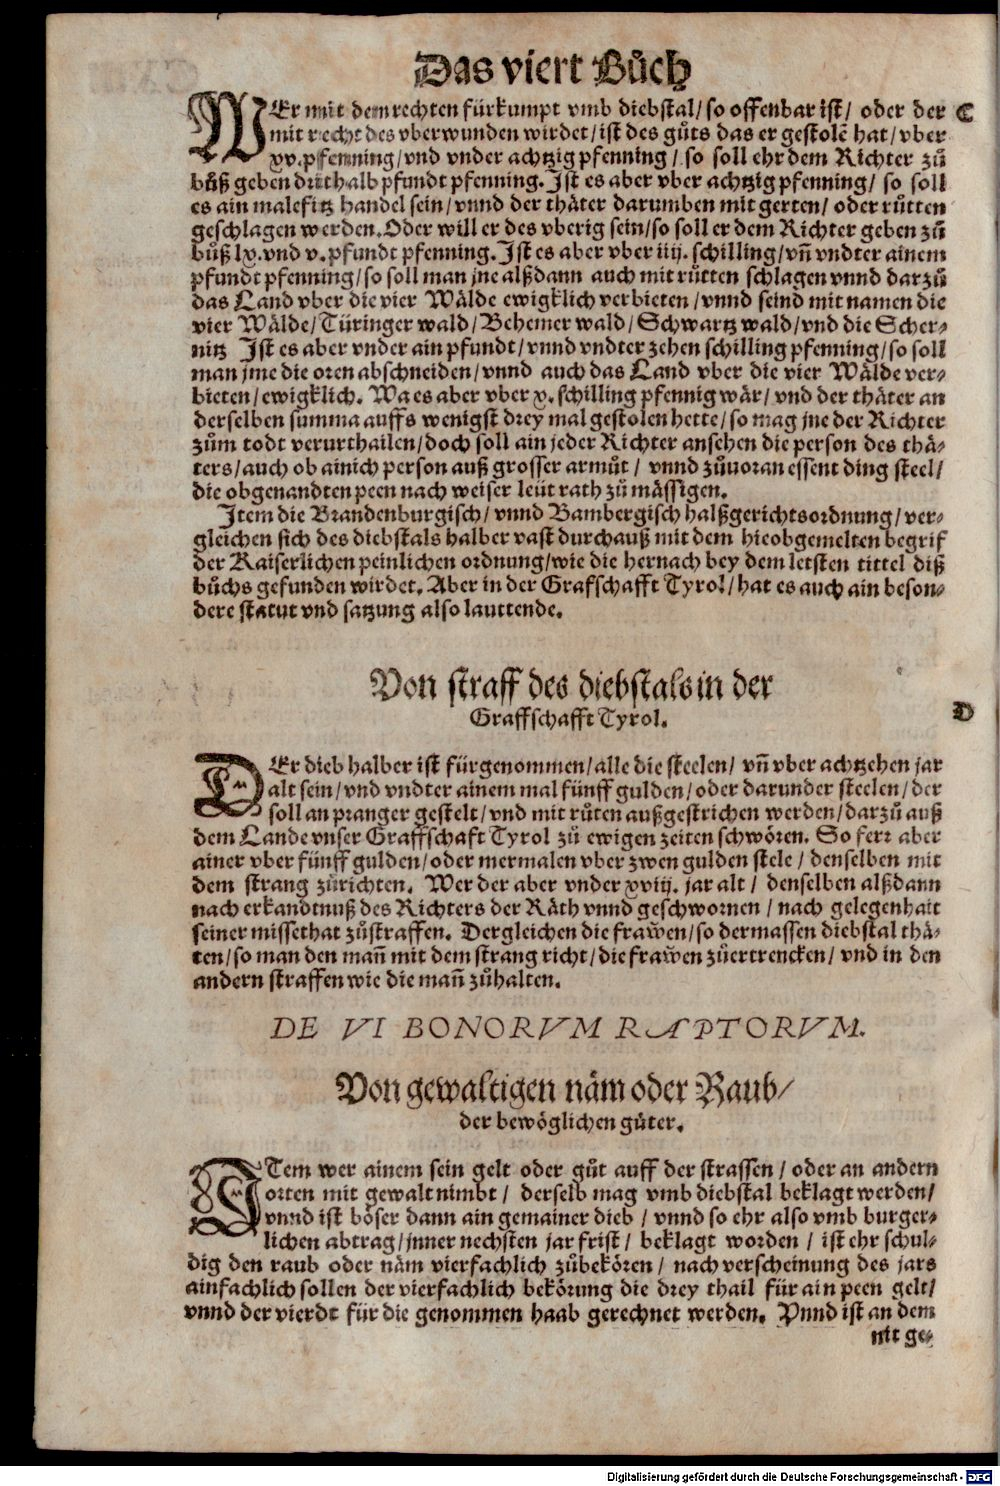 Das viert Bůch
WEr mit dem rechten fürkumpt vmb diebstal/ so offenbar ist/ oder der C
mit recht des vberwunden wirdet/ ist des gůts das er gestolē hat/ vber
xv. pfenning/ vnd vnder achtzig pfenning/ so soll ehr dem Richter zů
bůß geben drithalb pfundt pfenning. Ist es aber vber achtzig pfenning/ so soll
es ain malefitz handel sein/ vnnd der thäter darumben mit gerten/ oder růtten
geschlagen werden. Oder will er des vberig sein/ so soll er dem Richter geben zů
bůß lx. vnd v. pfundt pfenning. Ist es aber vber iiij. schilling/ vñ vndter ainem
pfundt pfenning/ so soll man jne alßdann auch mit růtten schlagen vnnd darzů
das Land vber die vier Wälde ewigklich verbieten/ vnnd seind mit namen die
vier Wälde/ Türinger wald/ Behemer wald/ Schwartz wald/ vnd die Scher-
nitz Ist es aber vnder ain pfundt/ vnnd vndter zehen schilling pfenning/ so soll
man jme die oren abschneiden/ vnnd auch das Land vber die vier Wälde ver-
bieten/ ewigklich. Wa es aber vber x. schilling pfennig wär/ vnd der thäter an
derselben summa auffs wenigst drey mal gestolen hette/ so mag jne der Richter
zům todt verurthailen/ doch soll ain jeder Richter ansehen die person des thä-
ters/ auch ob ainich person auß grosser armůt/ vnnd zůuoran essent ding steel/
die obgenandten peen nach weiser leüt rath zů mässigen.
Item die Brandenburgisch/ vnnd Bambergisch halßgerichtsordnung/ ver-
gleichen sich des diebstals halber vast durchauß mit dem hieobgemelten begrif
der Kaiserlichen peinlichen ordnung/ wie die hernach bey dem letsten tittel diß
bůchs gefunden wirdet. Aber in der Grafschafft Tyrol/ hat es auch ain beson-
dere statut vnd satzung also lauttende.
Von straff des diebstals in der
Graffschafft Tyrol. D
DEr dieb halber ist fürgenommen/ alle die steelen/ vñ vber achtzehen jar
alt sein/ vnd vndter ainem mal fünff gulden/ oder darunder steelen/ der
soll an pranger gestelt/ vnd mit růten außgestrichen werden/ darzů auß
dem Lande vnser Graffschaft Tyrol zů ewigen zeiten schwören. So ferr aber
ainer vber fünff gulden/ oder mermalen vber zwen gulden stele/ denselben mit
dem strang zůrichten. Wer der aber vnder xviij. jar alt/ denselben alßdann
nach erkandtnuß des Richters der Räth vnnd geschwornen/ nach gelegenhait
seiner missethat zůstraffen. Dergleichen die frawen/ so dermassen diebstal thä-
ten/ so man den mañ mit dem strang richt/ die frawen zůertrencken/ vnd in den
andern straffen wie die mañ zůhalten.
DE VI BONORVM RAPTORVM.
Von gewaltigen näm oder Raub/
der bewöglichen güter.
ITem wer ainem sein gelt oder gůt auff der strassen/ oder an andern
orten mit gewalt nimbt/ derselb mag vmb diebstal beklagt werden/
vnnd ist böser dann ain gemainer dieb/ vnnd so ehr also vmb burger-
lichen abtrag/ jnner nechsten jar frist/ beklagt worden/ ist ehr schul-
dig den raub oder näm vierfachlich zůbekören/ nach verscheinung des jars
ainfachlich sollen der vierfachlich bekörung die drey thail für ain peen gelt/
vnnd der vierdt für die genommen haab gerechnet werden. Vnnd ist an dem
nit ge-
Digitalisierung gefördert durch die Deutsche Forschungsgemeinschaft - DFG